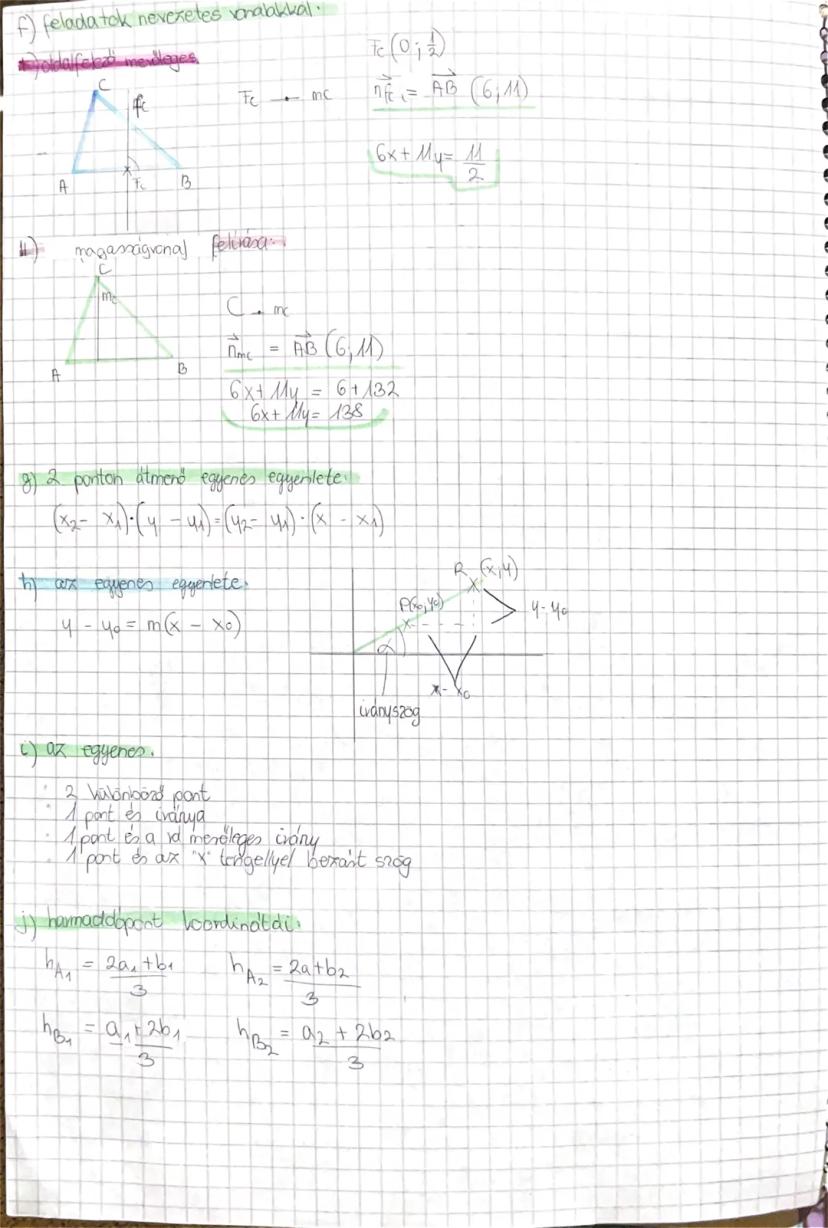 f) feladatok nevezetes vonalakkal.
*) oldalfelező merőleges
Fc (0; 1/2)
C
fc
Fc —•— mc
n⃗fc₁ = A⃗B⃗ (6; 11)
6x + 11y = 11/2
A
Fc
B
II) magasságvonal felírása:
C
mc
C • mc
n⃗mc = A⃗B⃗ (6; 11)
A
B
6x + 11y = 6 + 132
6x + 11y = 138
g) 2 ponton átmenő egyenes egyenlete.
(x₂ - x₁)·(y - y₁) = (y₂ - y₁)·(x - x₁)
h) az egyenes egyenlete.
R (x; y)
P(x₀; y₀)
y - y₀
y - y₀ = m(x - x₀)
α
x - x₀
irányszög
i) az egyenes.
· 2 különböző pont
· 1 pont és iránya
· 1 pont és a rá merőleges irány
· 1 pont és az "x" tengellyel bezárt szög
j) harmadolópont koordinátái.
hA₁ = 2a₁ + b₁ / 3 hA₂ = 2a + b₂ / 3
hB₁ = a₁ + 2b₁ / 3 hB₂ = a₂ + 2b₂ / 3